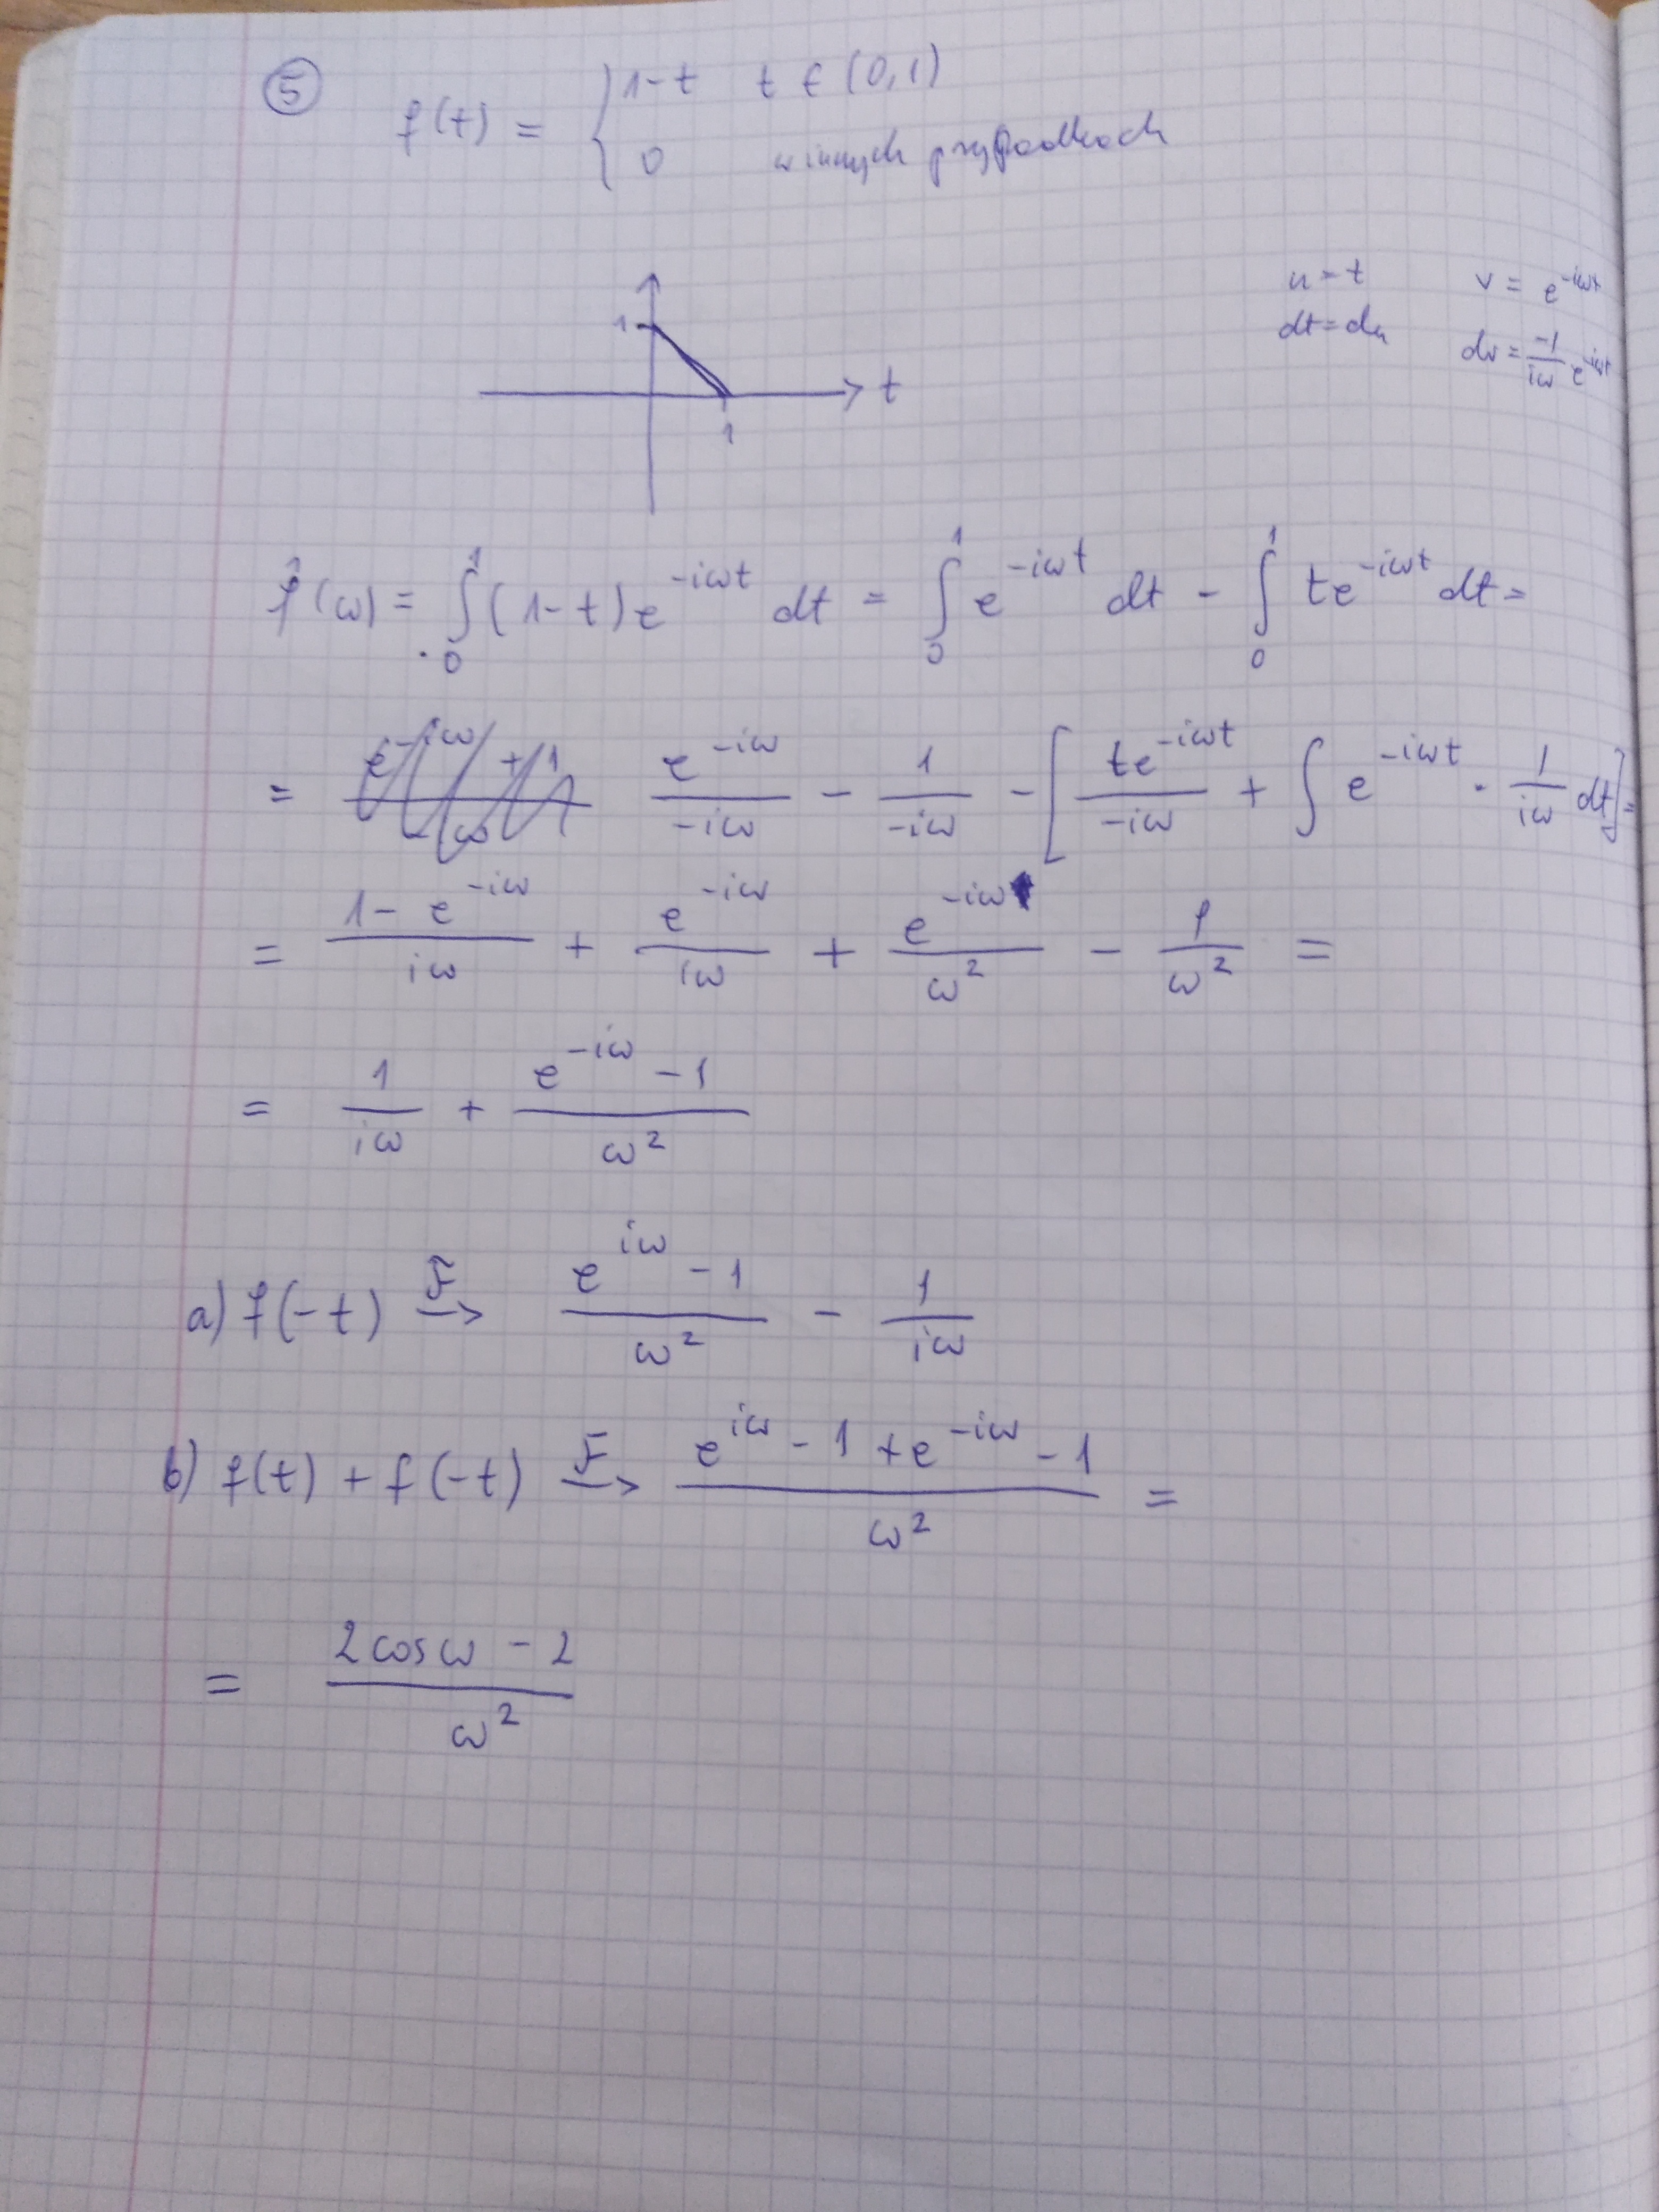 ⑤ f(t) = { 1-t t ∈ (0,1)
0 w innych przypadkach
1
t
1
u = t v = e^{-iωt}
dt = du dv = \frac{-1}{iω} e^{-iωt}
f̂(ω) = ∫_0^1 (1-t) e^{-iωt} dt = ∫_0^1 e^{-iωt} dt - ∫_0^1 t e^{-iωt} dt =
= \frac{e^{-iω}}{-iω} - \frac{1}{-iω} - [ \frac{t e^{-iωt}}{-iω} + ∫ e^{-iωt} · \frac{1}{iω} dt ] =
= \frac{1 - e^{-iω}}{iω} + \frac{e^{-iω}}{iω} + \frac{e^{-iω}}{ω^2} - \frac{1}{ω^2} =
= \frac{1}{iω} + \frac{e^{-iω} - 1}{ω^2}
a) f(-t) \xrightarrow{F} \frac{e^{iω} - 1}{ω^2} - \frac{1}{iω}
b) f(t) + f(-t) \xrightarrow{F} \frac{e^{iω} - 1 + e^{-iω} - 1}{ω^2} =
= \frac{2cosω - 2}{ω^2}